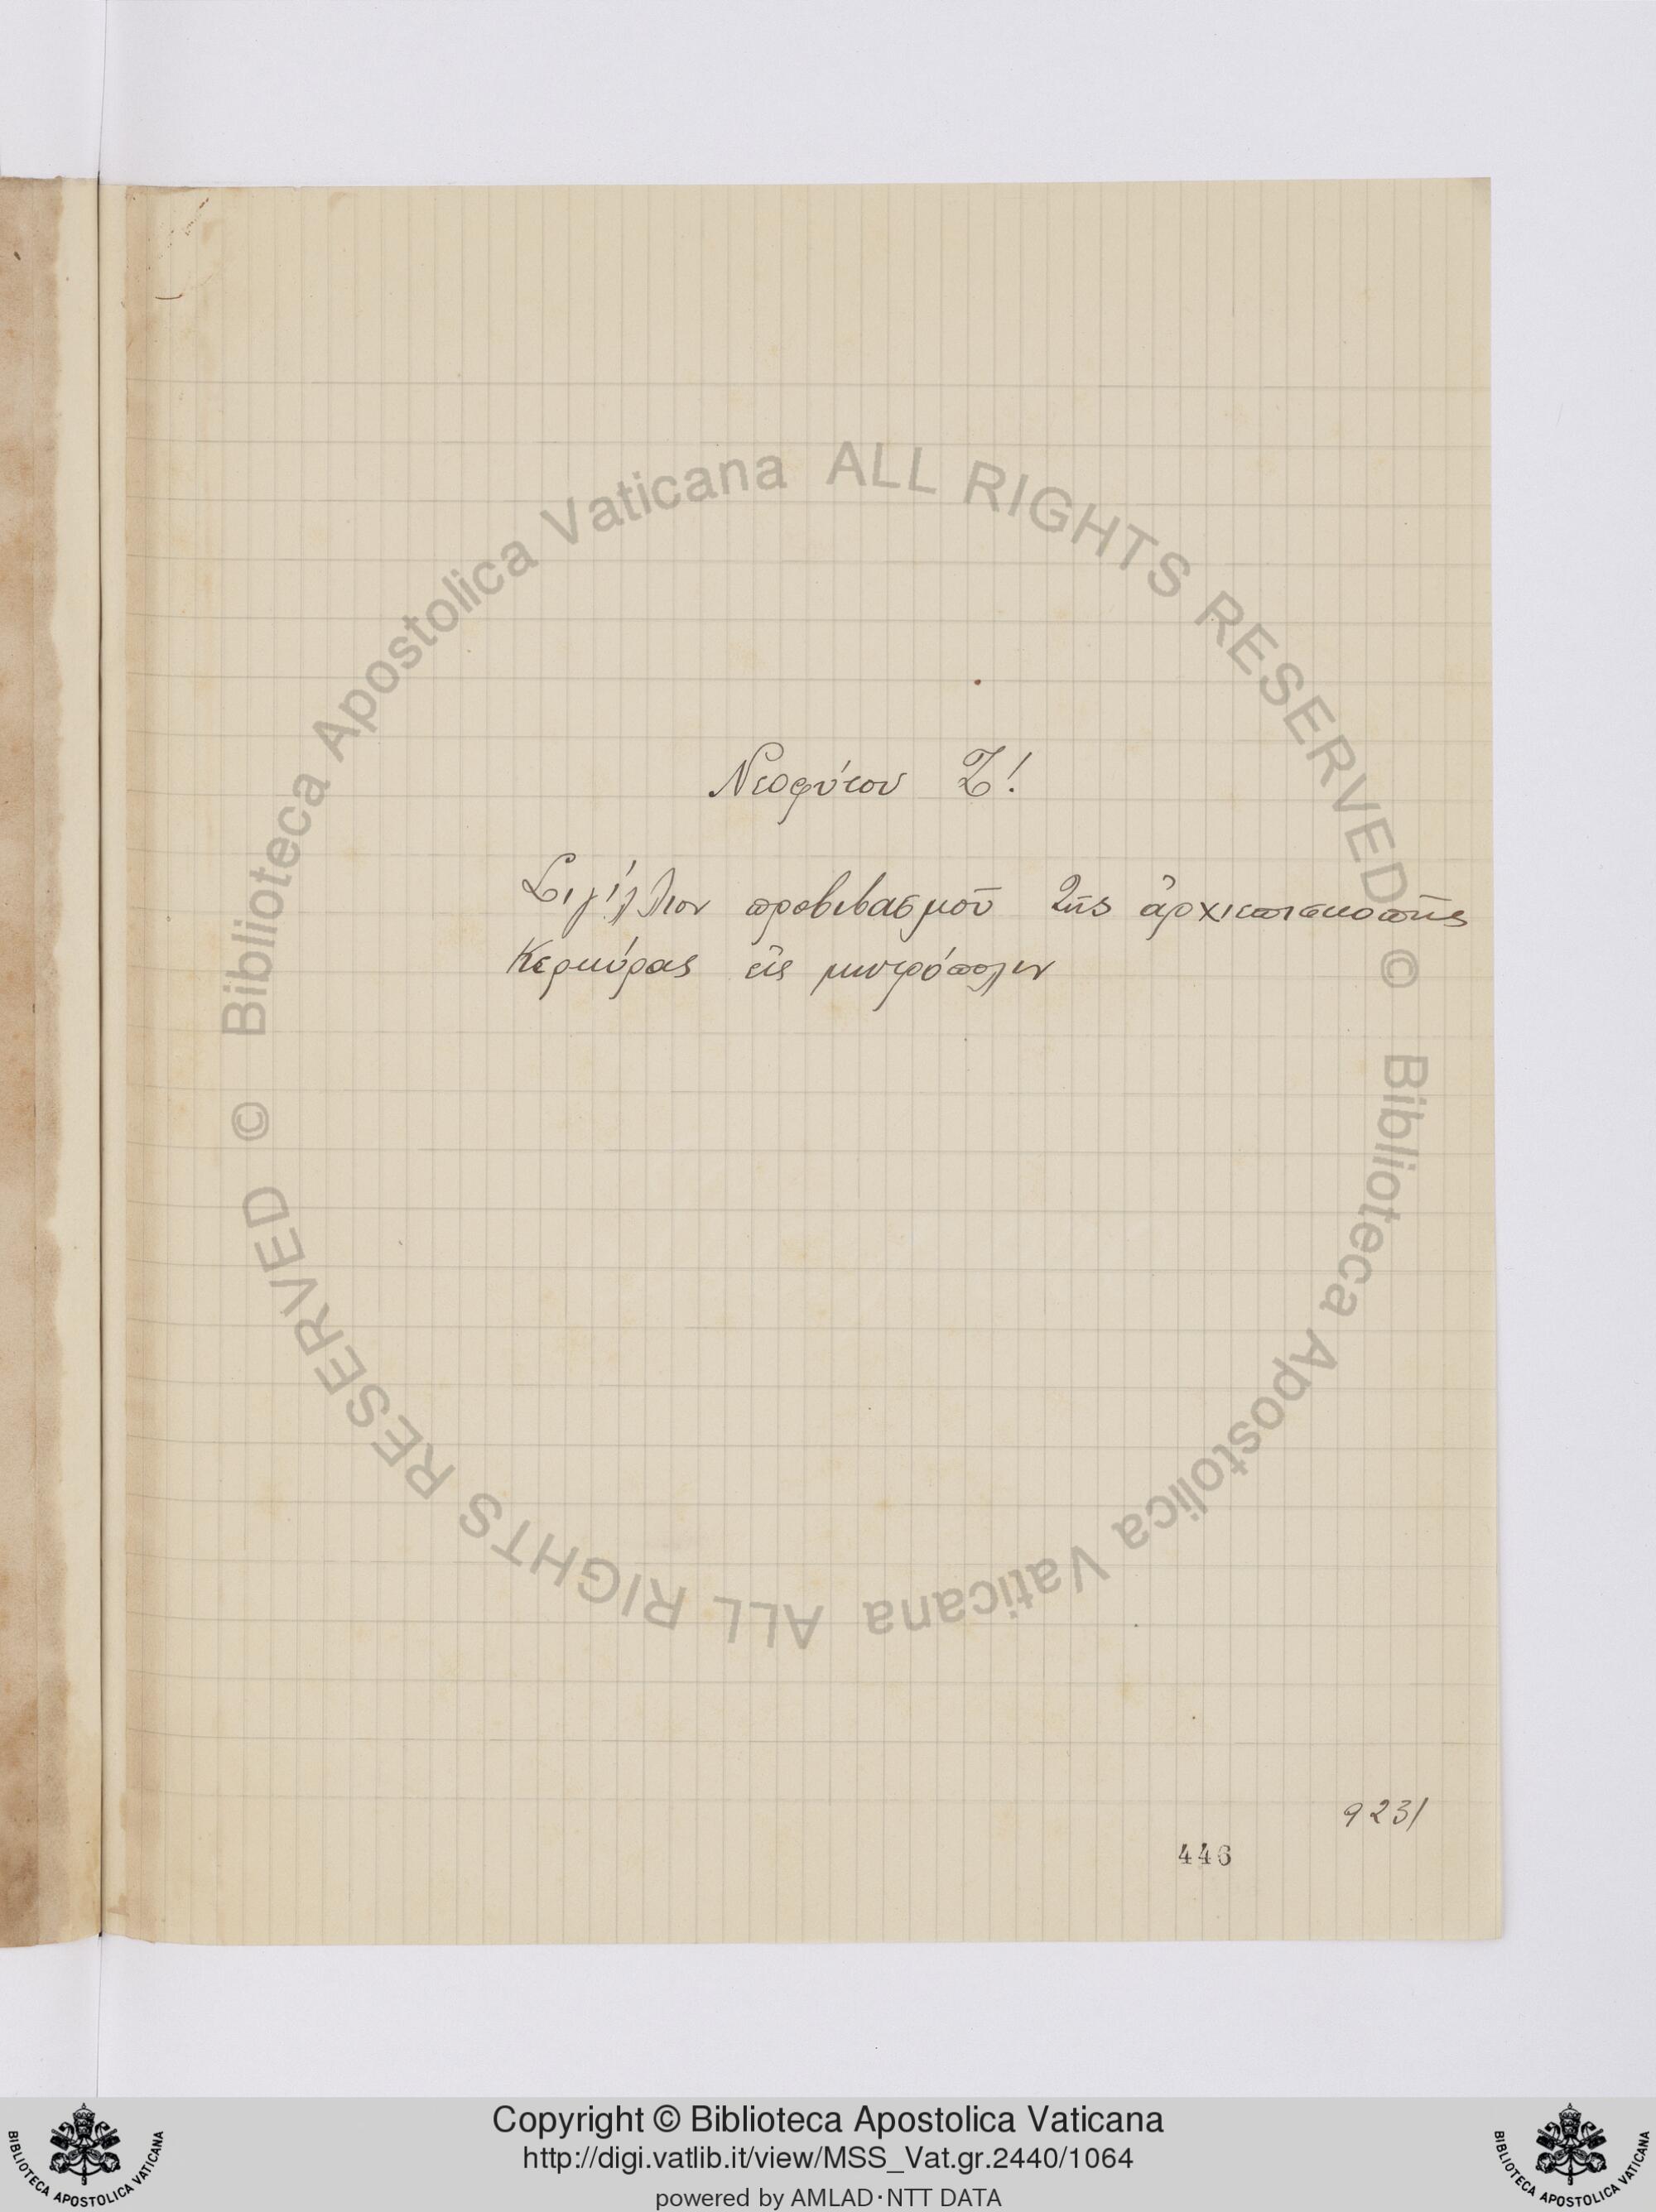 Νεοφύτου Ζ!
Σιγίλλιον προβιβασμοῦ τῆς ἀρχιεπισκοπῆς
Κερκύρας εἰς μητρόπολιν
9231
446
© Biblioteca Apostolica Vaticana ALL RIGHTS RESERVED
© Biblioteca Apostolica Vaticana ALL RIGHTS RESERVED
Copyright © Biblioteca Apostolica Vaticana
http://digi.vatlib.it/view/MSS_Vat.gr.2440/1064
powered by AMLAD·NTT DATA
BIBLIOTECA APOSTOLICA VATICANA
BIBLIOTECA APOSTOLICA VATICANA